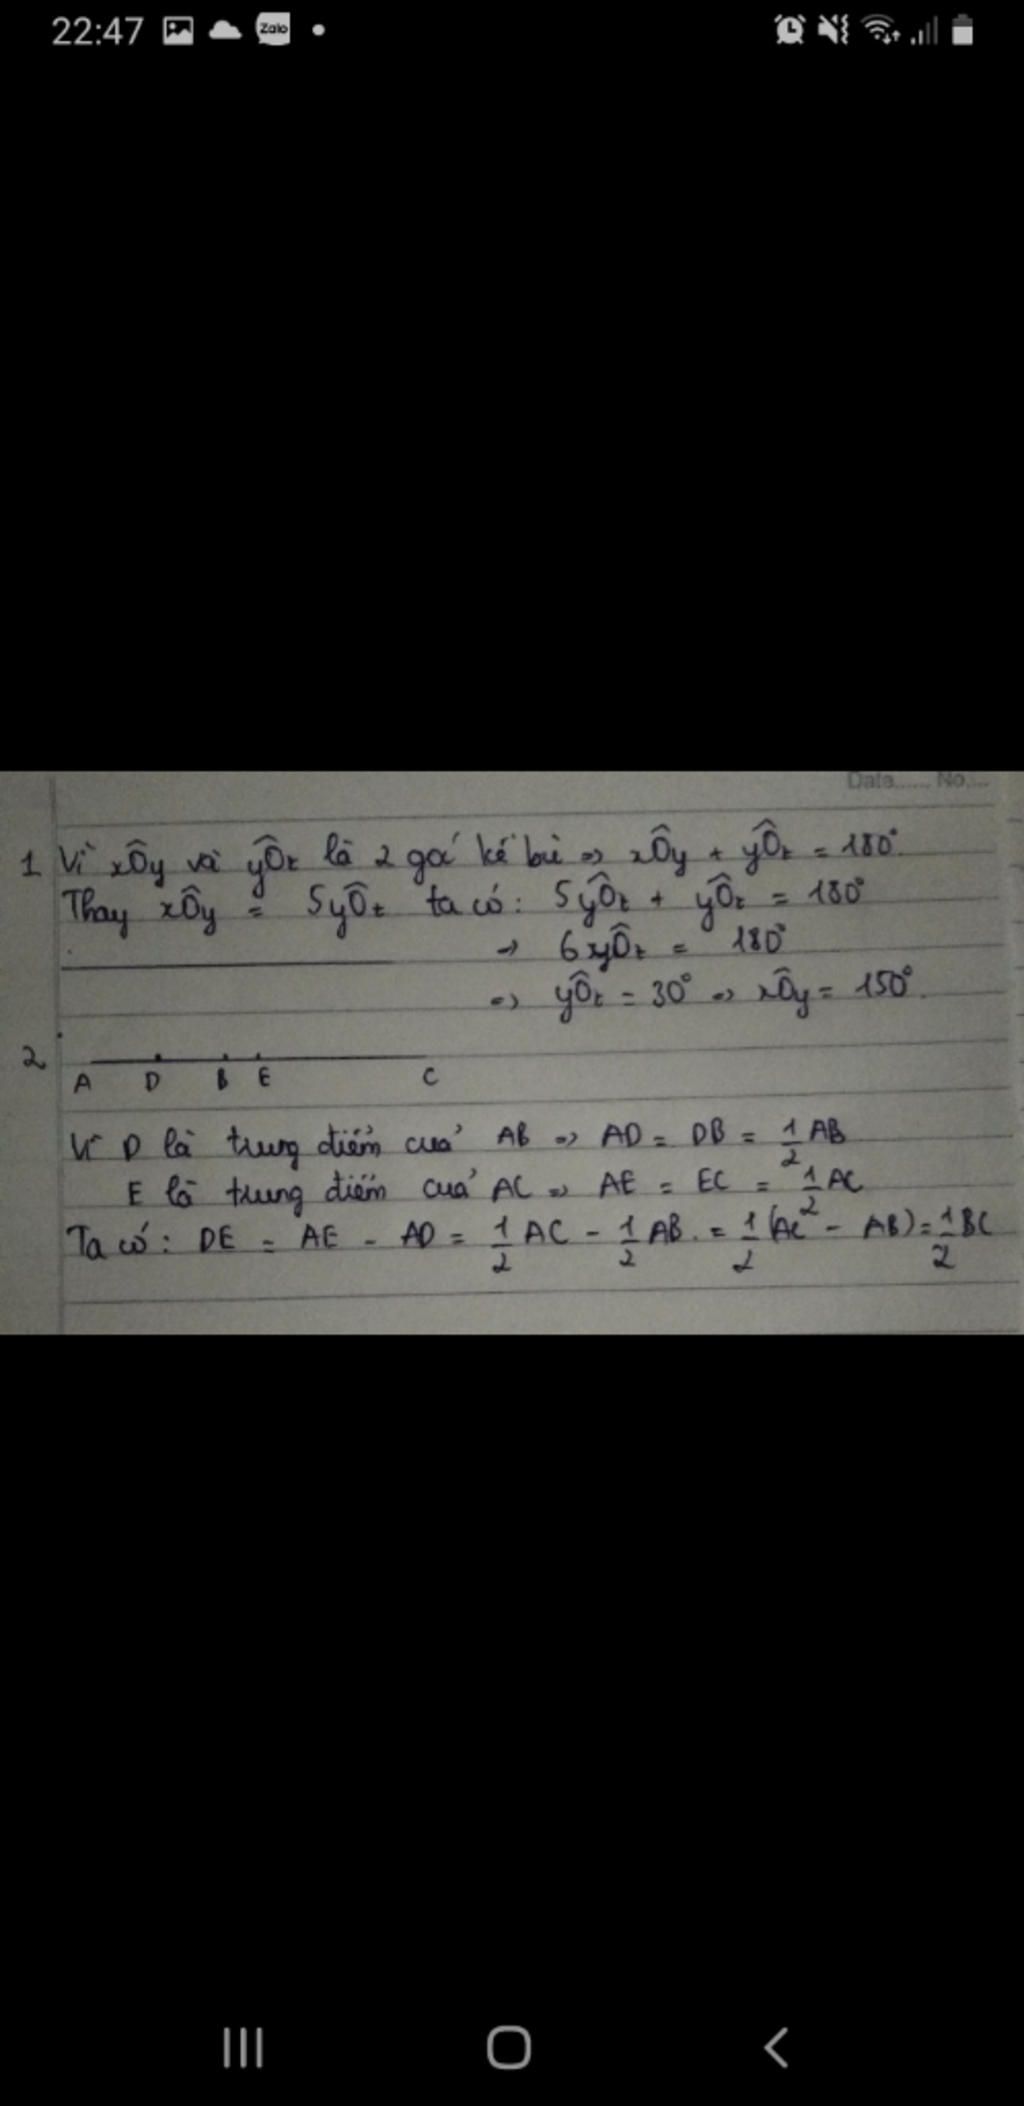 22:47 Zalo
Date...... No....
1 Vì xÔy và yÔt là 2 goć kề bù => xÔy + yÔt = 180°.
Thay xÔy = 5yÔt ta có: 5yÔt + yÔt = 180°
→ 6 yÔt = 180°
=> yÔt = 30° => xÔy = 150°.
2
A D B E C
Vì D là trung điểm của AB => AD = DB = 1/2 AB
E là trung điểm của AC => AE = EC = 1/2 AC
Ta có: DE = AE - AD = 1/2 AC - 1/2 AB. = 1/2 (AC - AB) = 1/2 BC